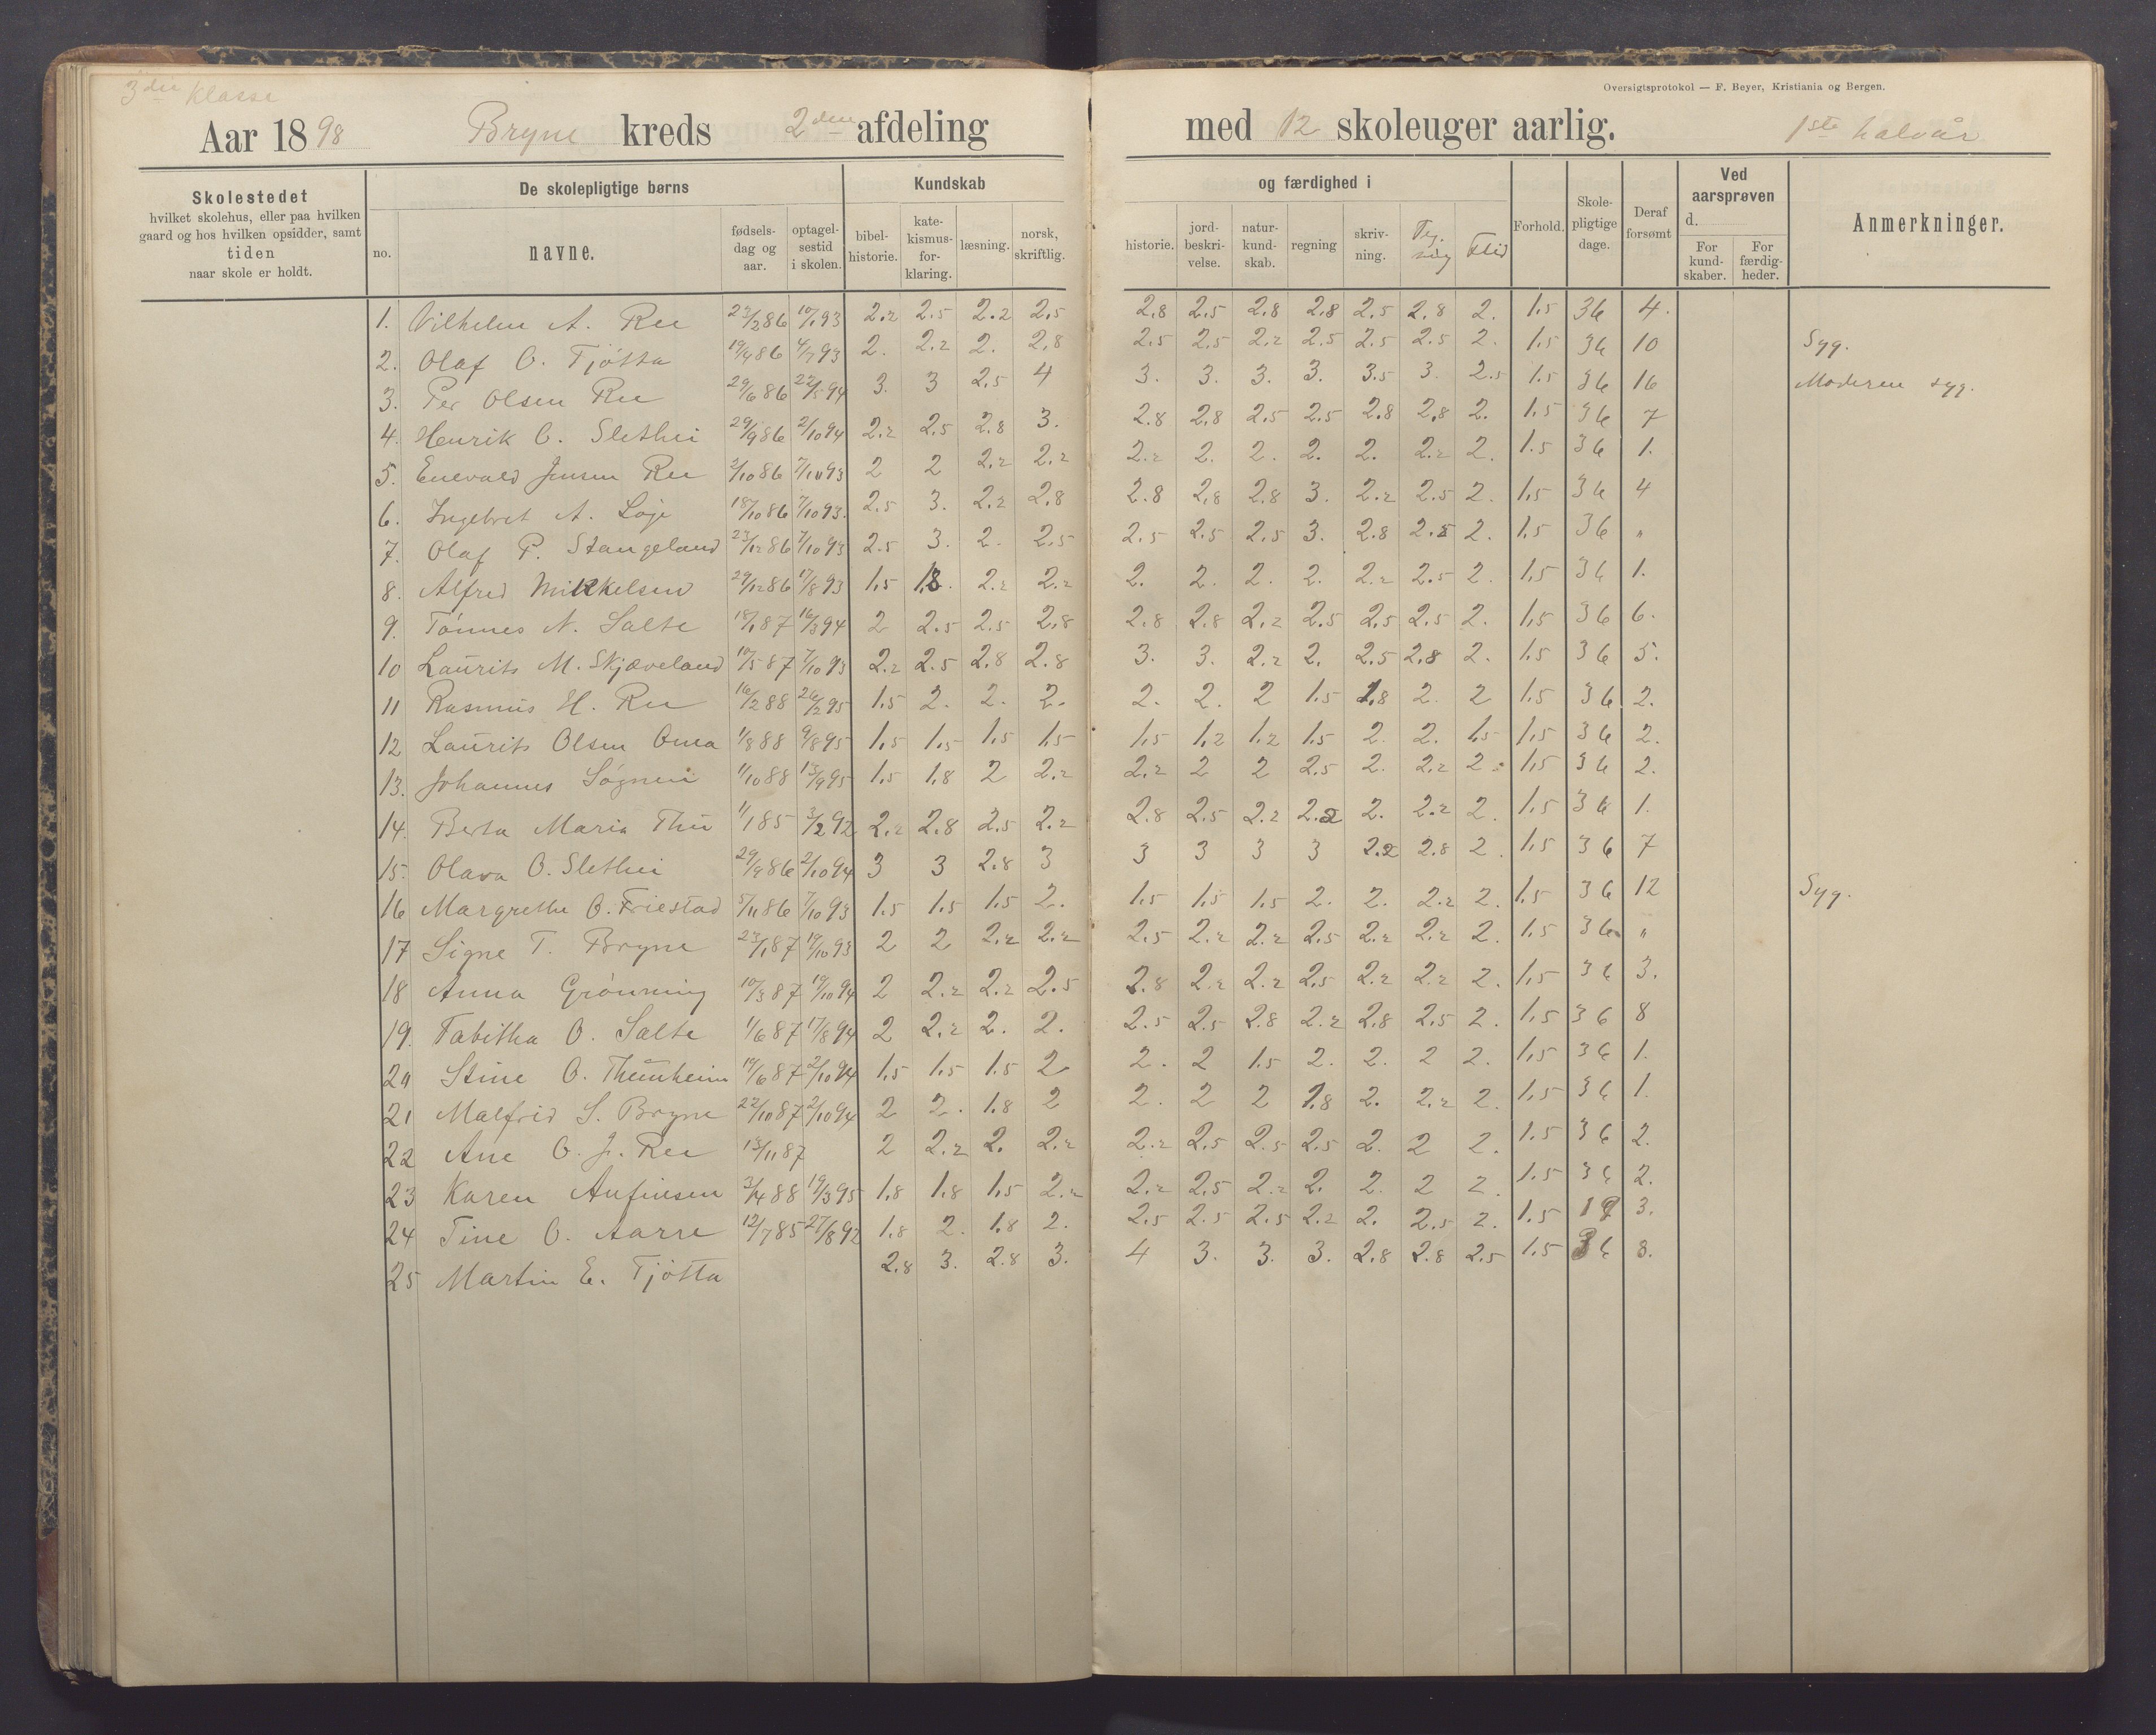 3die Klasse
Oversigtsprotokol — F. Beyer, Kristiania og Bergen.
Aar 1898 Bryne kreds 2den afdeling med 12 skoleuger aarlig. 1ste halvår
Skolestedet hvilket skolehus, eller paa hvilken gaard og hos hvilken opsidder, samt tiden naar skole er holdt.
De skolepligtige børns
no. navne. fødselsdag og aar. optagelsestid i skolen.
Kundskab og færdighed i
bibelhistorie. katekismusforklaring. læsning. norsk, skriftlig. historie. jordbeskrivelse. naturkundskab. regning skrivning. Tegning Flid
Forhold. Skolepligtige dage. Deraf forsømt
Ved aarsprøven d. For kundskaber. For færdigheder.
Anmerkninger.
1. Vilhelm A. Ree 23/2 86 10/1 93 2.2 2.5 2.2 2.5 2.8 2.5 2.8 2.8 2.5 2.8 2. 1.5 36 4.
2. Olaf O. Tjøtta 19/4 86 4/7 93 2. 2.2 2. 2.8 2.5 2.5 2.2 2.5 2.5 2.5 2. 1.5 36 10 Syg.
3. Per Olsen Ree 29/6 86 22/5 94 3. 3 2.5 4 3. 3. 3. 3. 3.5 3. 2.5 1.5 36 16 Moderen syg.
4. Henrik O. Slethei 29/9 86 2/10 94 2.2 2.5 2.8 3. 2.8 2.8 2.5 2.5 2.8 2.8 2. 1.5 36 7
5. Enevald Jensen Ree 2/10 86 7/10 93 2 2 2.2 2.2 2.2 2. 2. 2. 2. 2.2 2. 1.5 36 1.
6. Ingebret A. Løge 18/10 86 7/10 93. 2.5 3. 2.2 2.8 2.8 2.8 2.8 3. 2.2 2.5 2. 1.5 36 4
7. Olaf P. Stangeland 23/12 86 7/10 93 2.5 3. 2. 2.5 2.5 2.5 2.5 3. 2.8 2.5 2. 1.5 36 "
8. Alfred Mikkelsen 29/12 86 17/8 93 1.5 1.8. 2.2 2.2 2. 2. 2. 2. 2.2 2.5 2. 1.5 36 1.
9. Tønnes N. Salte 18/1 87 16/3 94 2 2.5 2.5 2.8 2.8 2.8 2.2 2.5 2.5 2.5 2. 1.5 36 6.
10 Laurits M. Skjæveland 10/5 87 7/10 93 2.2 2.5 2.8 2.8 3. 3. 2.2 2. 2.5 2.8 2. 1.5 36 5.
11 Rasmus H. Ree 16/2 88 26/2 95 1.5 2. 2. 2. 2. 2. 2 1.5 1.8 2. 2 1.5 36 2.
12 Laurits Olsen Oma 1/8 88 9/8 95 1.5 1.5 1.5 1.5 1.5 1.2 1.2 1.5 2. 2. 1.5 1.5 36 2.
13. Johannes Søgnen 1/10 88 13/9 95 1.5 1.8 2 2.2 2.2 2 2 2.5 2. 2.2 2. 1.5 36 2.
14. Berta Maria Thu 1/1 85 3/2 92 2.2 2.8 2.5 2.2 2.8 2.5 2.2 2.2 2. 2.2 2. 1.5 36 1.
15. Olava O. Slethei 29/9 86 2/10 94 3 3 2.8 3 3 3 3 3 2.2 2.8 2. 1.5 36 7
16 Margrethe O. Friestad 5/11 86 7/10 93 1.5 1.5 1.5 2. 1.5 1.5 1.5 2. 2. 2.2 2. 1.5 36 12 Syg.
17 Signe T. Bryne 27/1 87 19/10 93 2 2 2.2 2.2 2.5 2.2 2.2 2.5 2.2 2.2 2. 1.5 36 "
18 Anna Grønning 10/3 87 19/10 94 2 2.2 2.2 2.5 2.8 2.2 2.2 2.5 2.2 2.2 2. 1.5 36 3.
19. Tabitha O. Salte 1/6 87 17/8 94 2 2.2 2. 2. 2.5 2.5 2.8 2.2 2.8 2.5 2. 1.5 36 8
20 Stine O. Thunheim 19/6 87 2/10 94 1.5 1.5 1.5 2 2. 2 1.5 2. 2. 2 2. 1.5 36 1.
21 Malfrid S. Bryne 22/10 87 2/10 94 2 2. 1.8 2 2. 2 2 1.8 2. 2.2 2. 1.5 36 1.
22 Ane O. J. Ree 13/11 87 2 2.2 2. 2.2 2.2 2.5 2.5 2.5 2. 2 2. 1.5 36 2.
23 Karen Aufinsen 3/4 88 19/3 95 1.8 1.8 1.5 2.2 2.2 2.5 2.2 2. 2. 2 2. 1.5 36 2.
24 Tine O. Aarre 12/7 85 27/8 92 1.8 2. 1.8 2. 2.5 2.5 2.5 2.2 2. 2.5 2. 1.5 3.
25 Martin E. Tjøtta 2.8 3. 2.8 3. 4 3. 3. 3. 2.8 2.8 2.5 1.5 36 8.